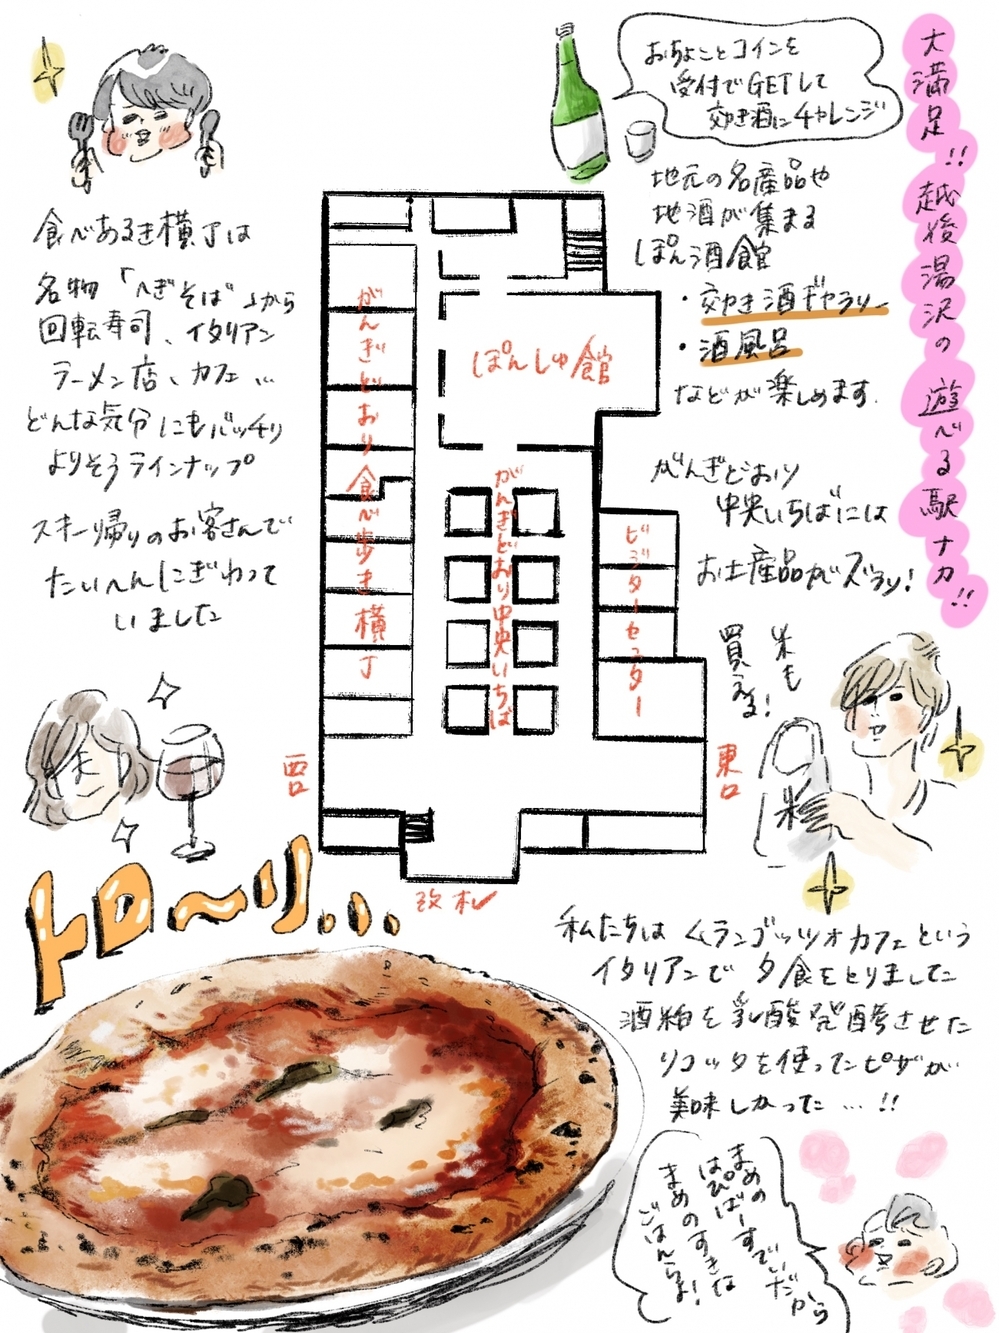 大満足!! 越後湯沢の 遊べる駅ナカ!!
おちょことコインを
受付でGETして
効き酒にチャレンジ
地元の名産品や
地酒が集まる
ぽん酒館
・効き酒ギャラリー
・酒風呂
などが楽しめます.
がんぎどおり
中央いちばには
お土産品がズラリ!
米も
買える!
米
食べあるき横丁は
名物「へぎそば」から
回転寿司、イタリアン
ラーメン店、カフェ…
どんな気分にもバッチリ
よりそうラインナップ
スキー帰りのお客さんで
たいへんにぎわって
いました
がんぎどおり食べ歩き横丁
ぽんしゅ館
がんぎどおり中央いちば
ビジターセンター
西口
東口
改札
トロ〜リ...
私たちは ムランゴッツォカフェという
イタリアンで夕食をとりました
酒粕を乳酸発酵させた
リコッタを使ったピザが
美味しかった…!!
まめの
はぴばーすでいだから
まめのすきな
ごはんらよ!